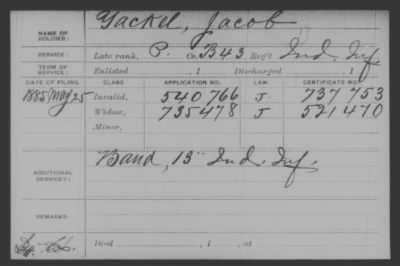 NAME OF SOLDIER: Gackel, Jacob
SERVICE: Late rank, P. Co. B 43 Reg't Ind. Inf
TERM OF SERVICE: Enlisted , 1 Discharged , 1
DATE OF FILING. CLASS APPLICATION NO. LAW. CERTIFICATE NO.
1885 May 25 Invalid, 540 766 J. 737 753
Widow, 735 478 J 521 470
Minor,
ADDITIONAL SERVICES: Band, 13" Ind. Inf.
REMARKS:
Died , 1 , at